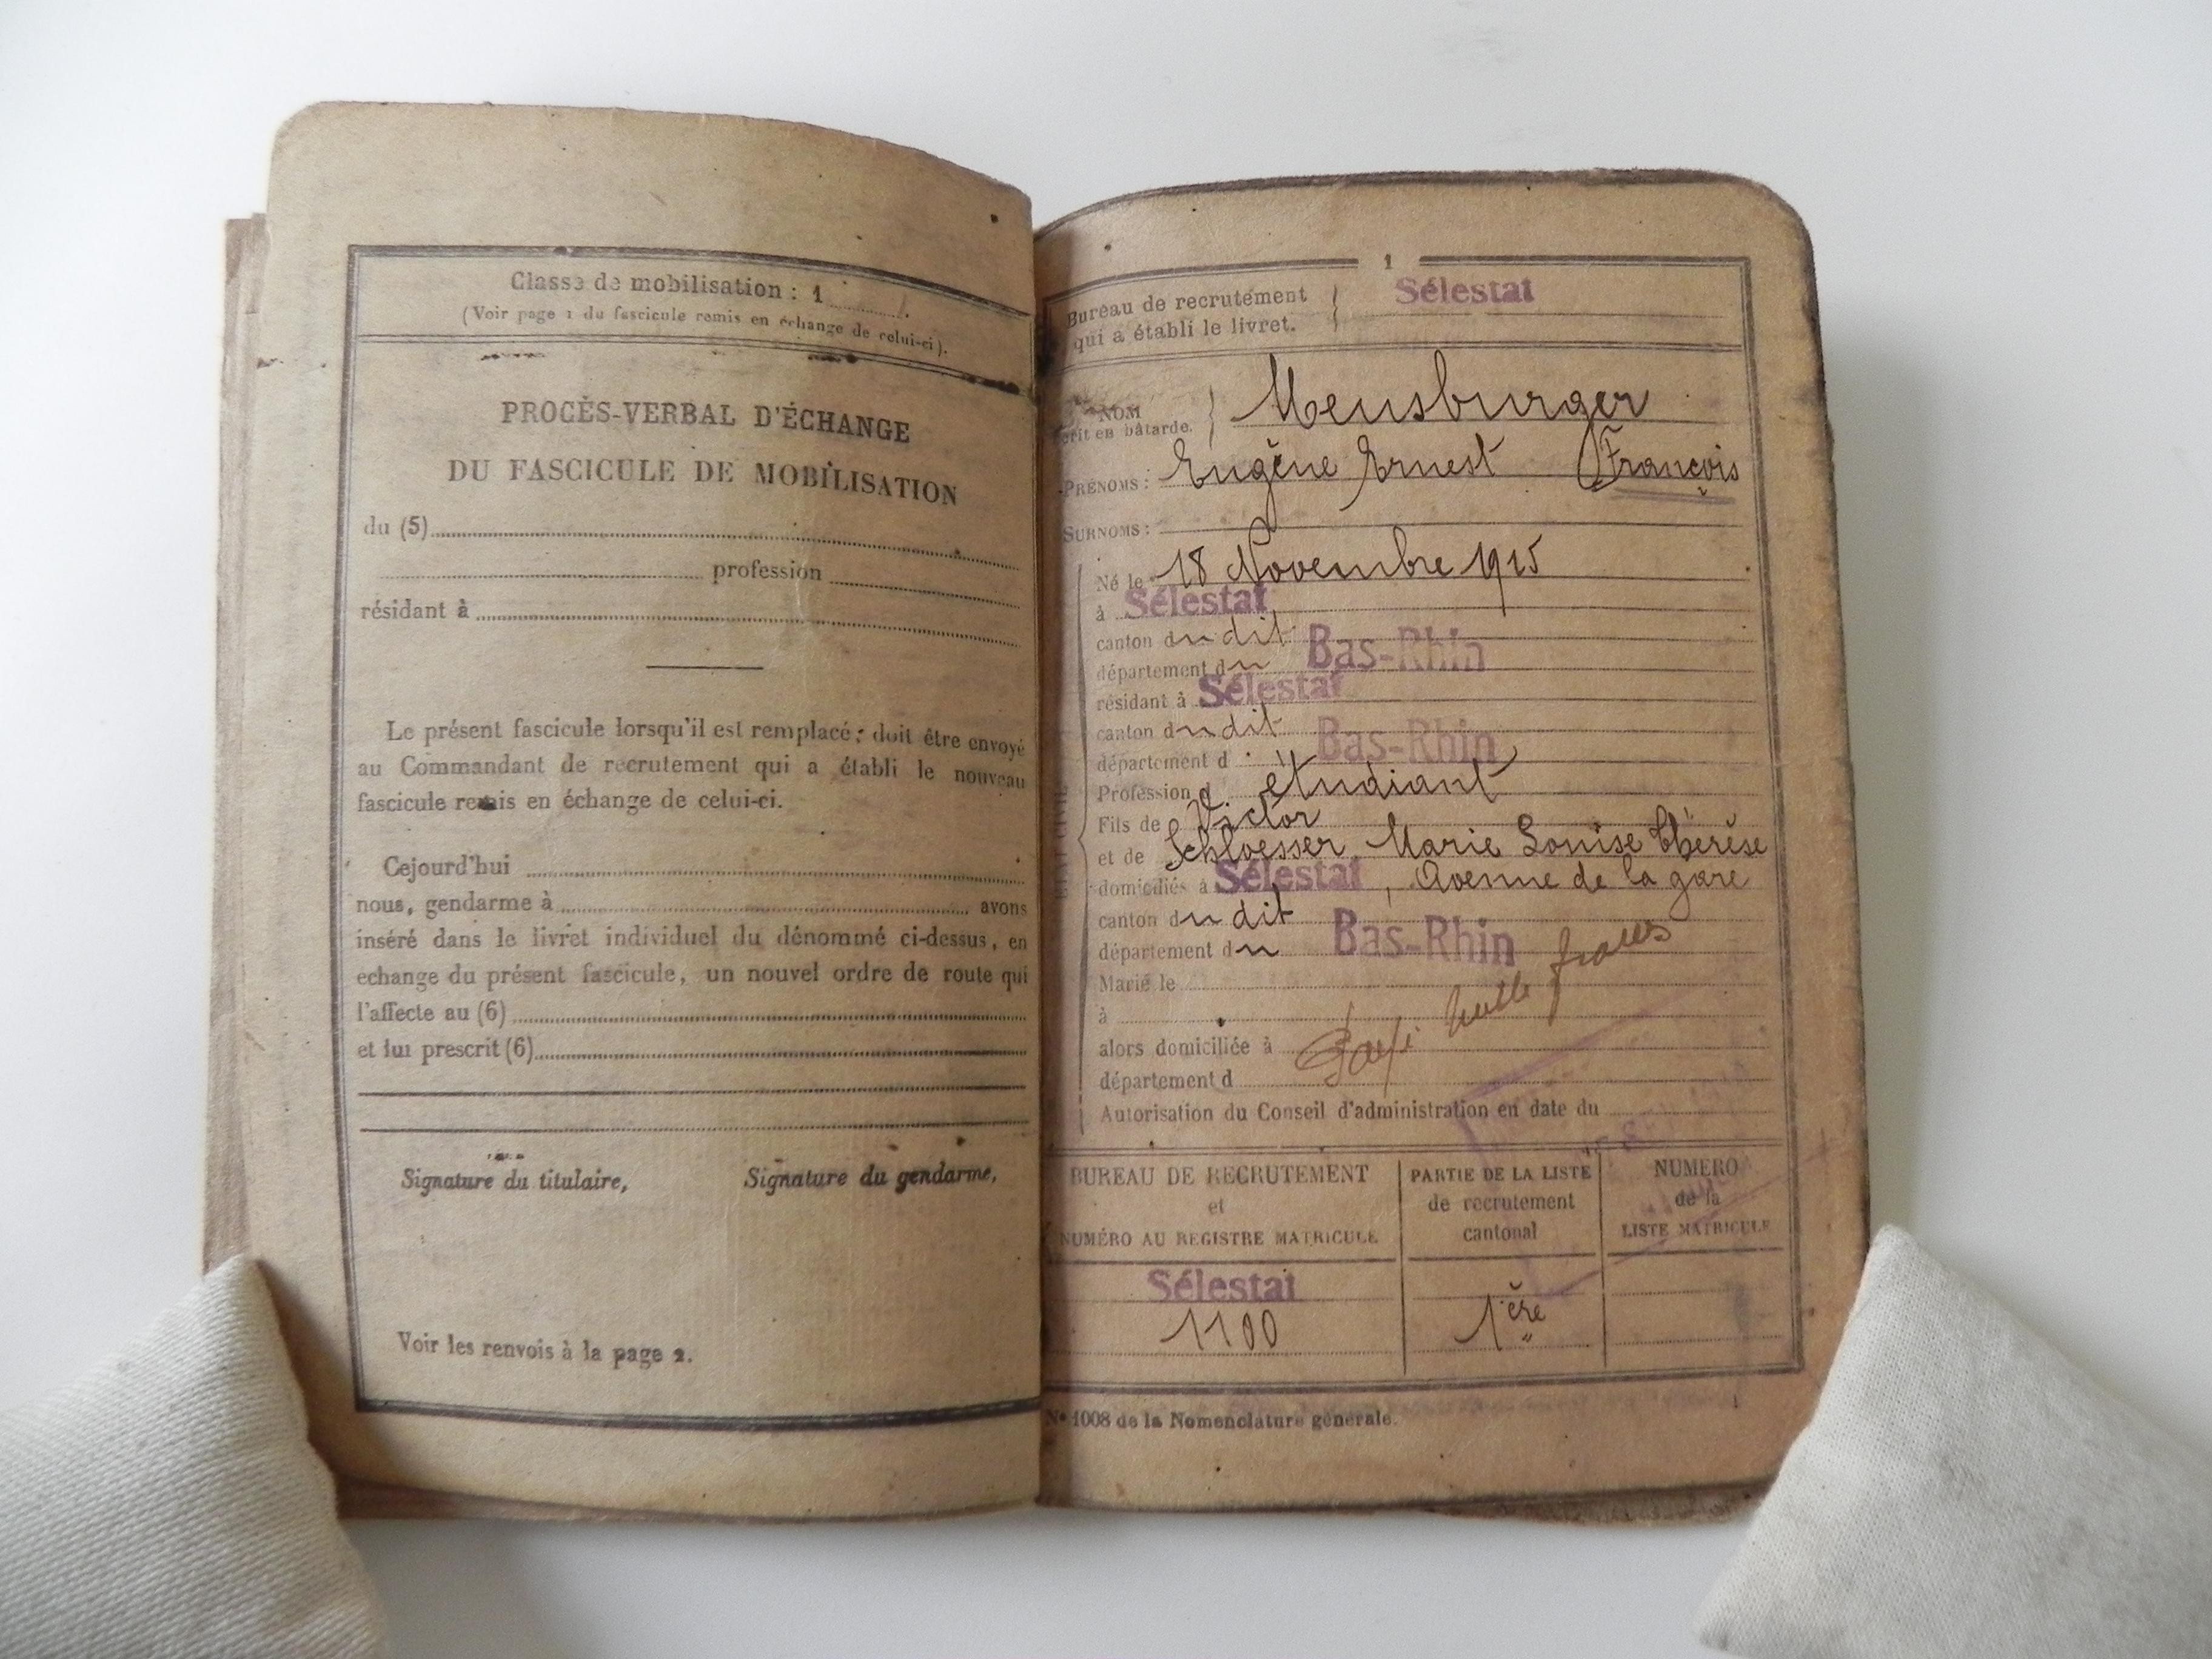 Classe de mobilisation : 1
(Voir page 1 du fascicule remis en échange de celui-ci).
PROCÈS-VERBAL D'ÉCHANGE
DU FASCICULE DE MOBILISATION
du (5)
profession
résidant à
Le présent fascicule lorsqu'il est remplacé; doit être envoyé
au Commandant de recrutement qui a établi le nouveau
fascicule remis en échange de celui-ci.
Cejourd'hui
nous, gendarme à avons
inséré dans le livret individuel du dénommé ci-dessus, en
echange du présent fascicule, un nouvel ordre de route qui
l'affecte au (6)
et lui prescrit (6)
Signature du titulaire, Signature du gendarme,
Voir les renvois à la page 2.
1
Bureau de recrutement Sélestat
qui a établi le livret.
NOM Meusburger
écrit en bâtarde.
PRÉNOMS : Eugène Ernest (François
SURNOMS :
Né le 18 Novembre 1915
à Sélestat
canton du dit
département du Bas-Rhin
résidant à Sélestat
canton du dit
département d " Bas-Rhin
Profession d étudiant
Fils de Victor
et de Schloesser Marie Louise Thérèse
domiciliés à Sélestat, Avenue de la gare
canton du dit
département du Bas-Rhin
Marié le
à
alors domiciliée à
département d
Autorisation du Conseil d'administration en date du
BUREAU DE RECRUTEMENT
et
NUMÉRO AU REGISTRE MATRICULE
PARTIE DE LA LISTE
de recrutement
cantonal
NUMÉRO
de la
LISTE MATRICULE
Sélestat
1100 1ère
N° 1008 de la Nomenclature générale.